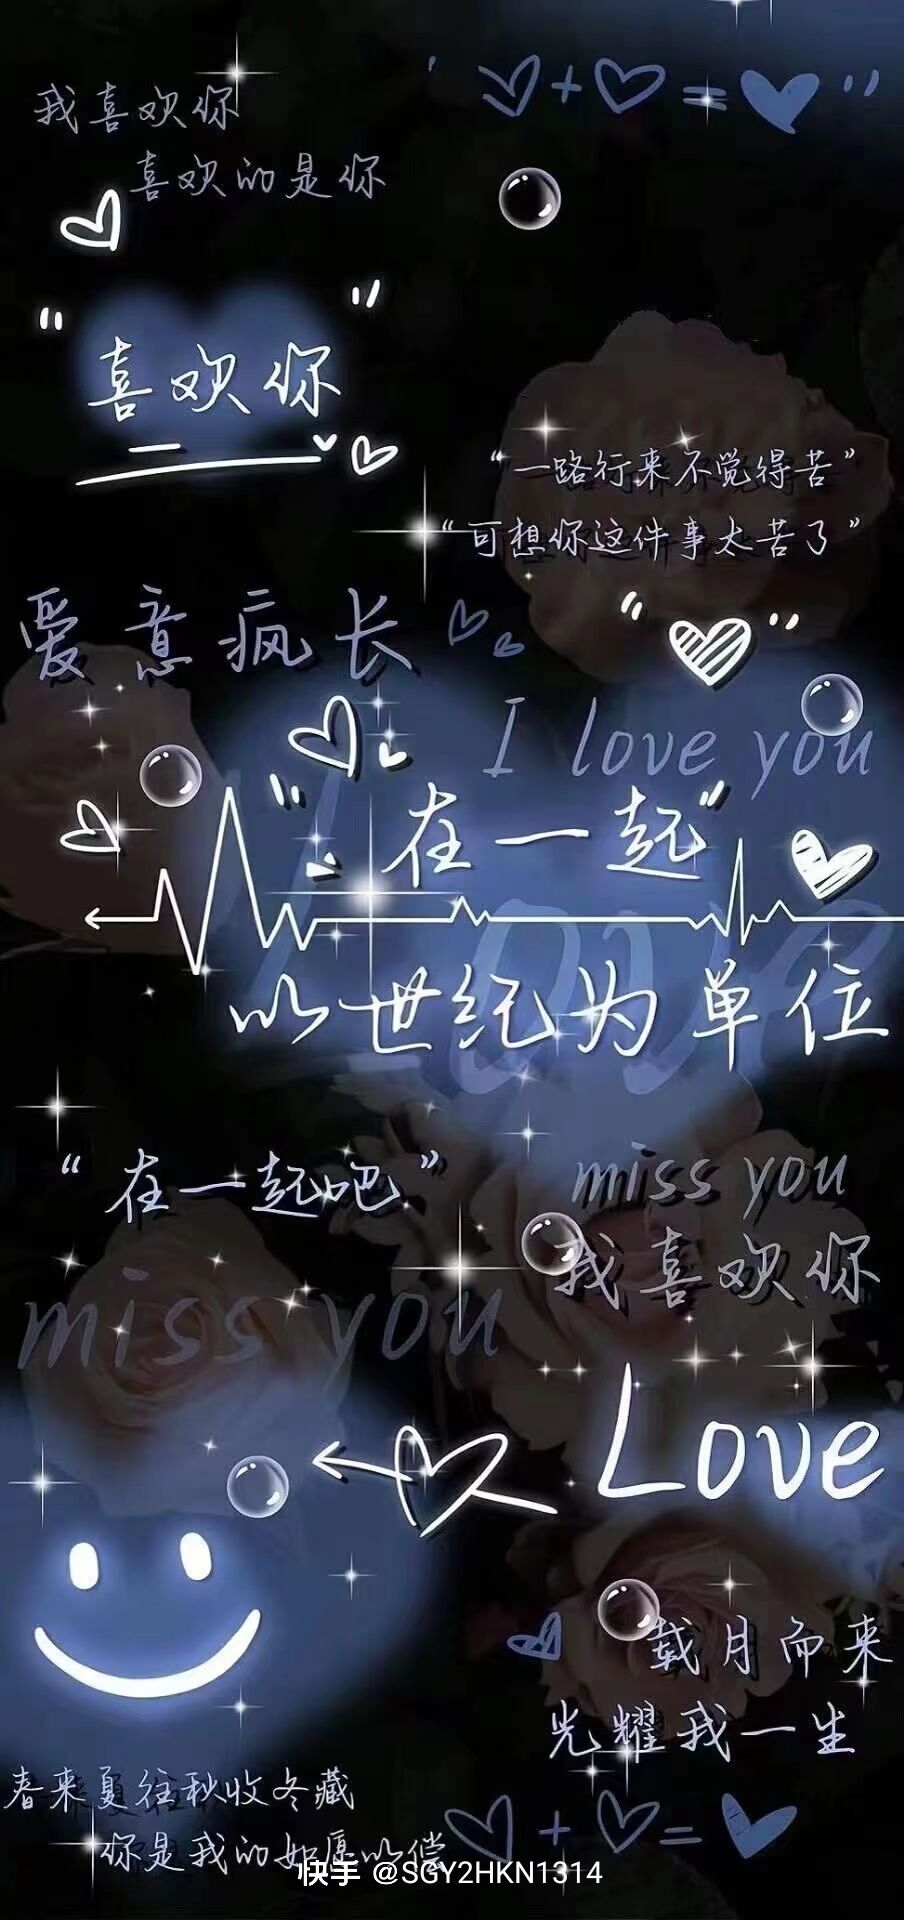 我喜欢你
喜欢的是你
"喜欢你"
"一路行来不觉得苦"
"可想你这件事太苦了"
爱意疯长
I love you
"在一起"
Love
以世纪为单位
"在一起吧"
miss you
我喜欢你
miss you
Love
载月而来
光耀我一生
春来夏往秋收冬藏
你是我的如愿以偿
快手 @SGY2HKN1314